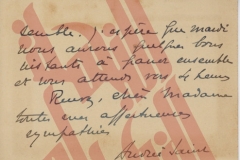 semble. J'espère que mardi
nous aurons quelques bons
instants à passer ensemble
et vous attends vers 4 heures
chère Madame
toutes mes affectueuses
sympathies